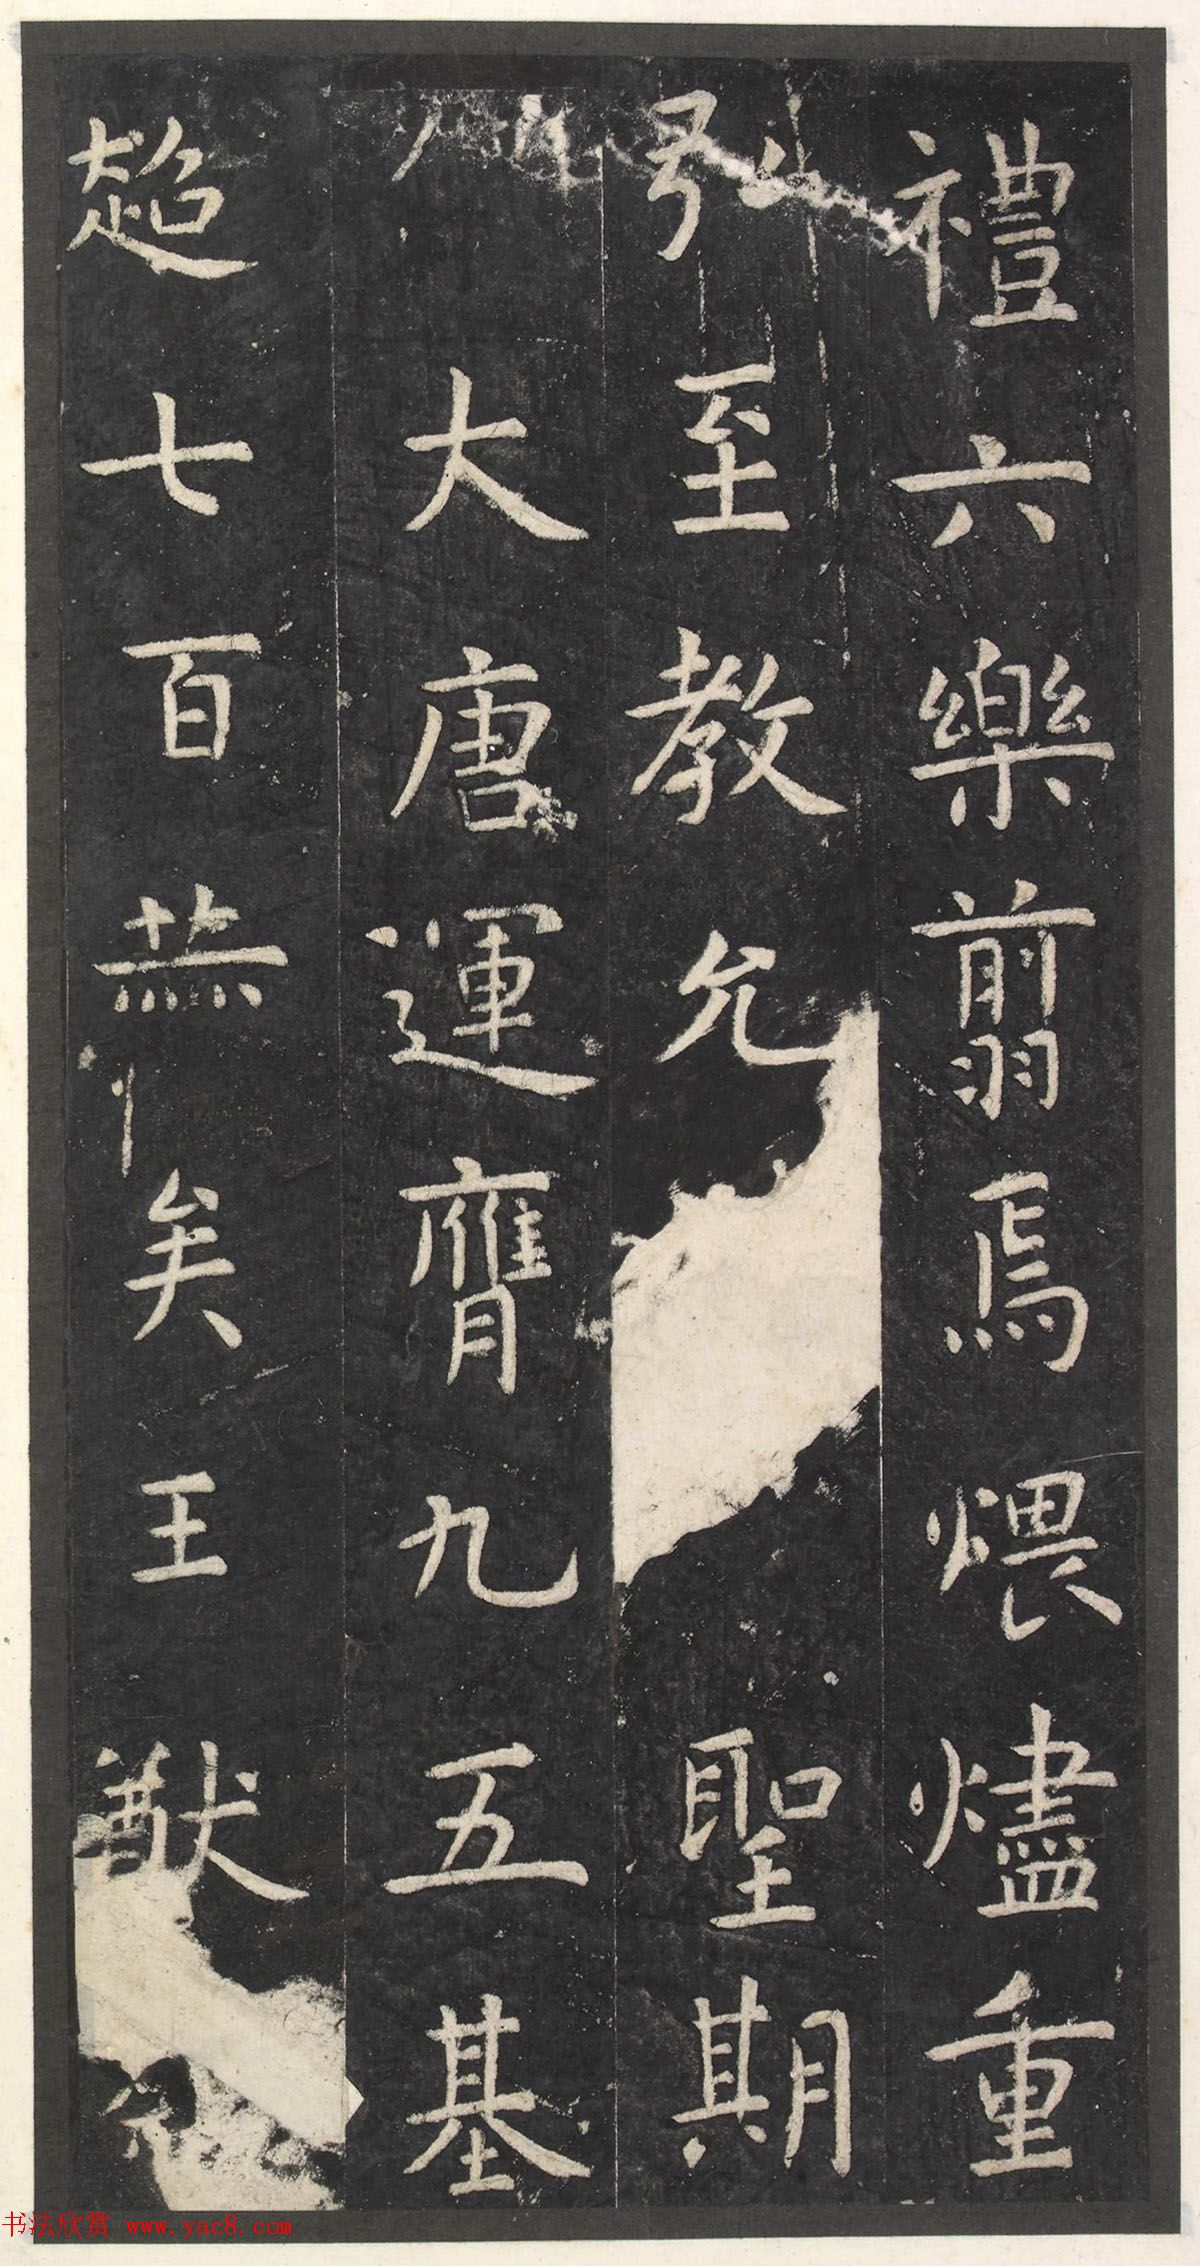 禮六樂翦焉煨燼重
弘至教允聖期
大唐運膺九五基
超七百茫矣王猷
书法欣赏 www.yac8.com